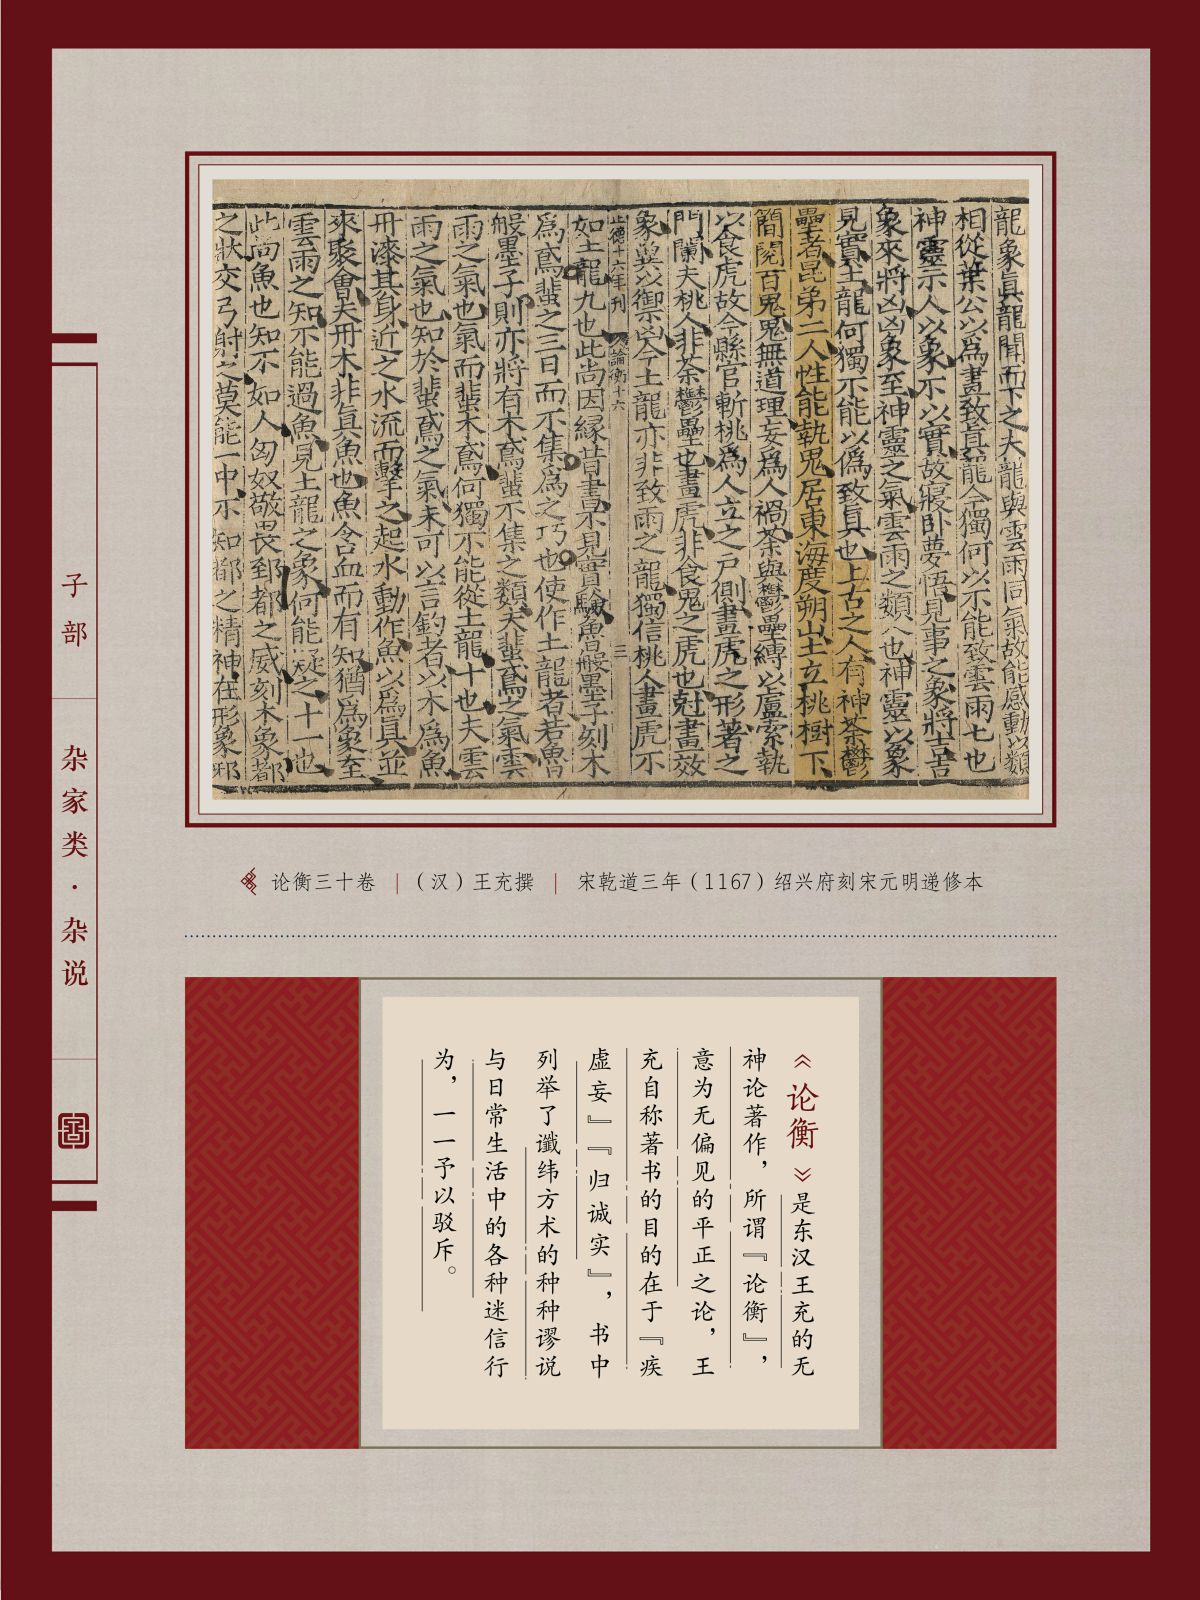 龍象眞龍聞而下之夫龍與雲雨同氣故能感動以類
相從葉公以爲畫致眞龍今獨何以不能致雲雨七也
神靈示人以象不以實故寢卧夢悟見事之象將吉吉
象來將凶凶象至神靈之氣雲雨之類八也神靈以象
見實土龍何獨不能以僞致眞也上古之人有神荼鬱
壘者昆弟二人性能執鬼居東海度朔山上立桃樹下
簡閱百鬼鬼無道理妄爲人禍荼與鬱壘縛以盧索執
以食虎故今縣官斬桃爲人立之戶側畫虎之形著之
門闌夫桃人非荼鬱壘也畫虎非食鬼之虎也尅畫效
象冀以御凶今土龍亦非致雨之龍獨信桃人畫虎不
正德十六年刊 論衡十六 三
如土龍九也此尚因緣昔書不見實驗魯般墨子刻木
爲鳶蜚之三日而不集爲之巧也使作土龍者若魯
般墨子則亦將有木鳶蜚不集之類夫蜚鳶之氣雲
雨之氣也氣而蜚木鳶何獨不能從土龍十也夫雲
雨之氣也知於蜚鳶之氣未可以言釣者以木爲魚
丹漆其身近之水流而擊之起水動作魚以爲眞並
來聚會夫丹木非眞魚也魚含血而有知猶爲象至
雲雨之知不能過魚見土龍之象何能疑之十一也
此尚魚也知不如人匈奴敬畏郅都之威刻木象都
之狀交弓射之莫能一中不知都之精神在形象邪
子部
杂家类·杂说
论衡三十卷｜（汉）王充撰｜宋乾道三年（1167）绍兴府刻宋元明递修本
《论衡》是东汉王充的无
神论著作，所谓『论衡』，
意为无偏见的平正之论，王
充自称著书的目的在于『疾
虚妄』『归诚实』，书中
列举了谶纬方术的种种谬说
与日常生活中的各种迷信行
为，一一予以驳斥。